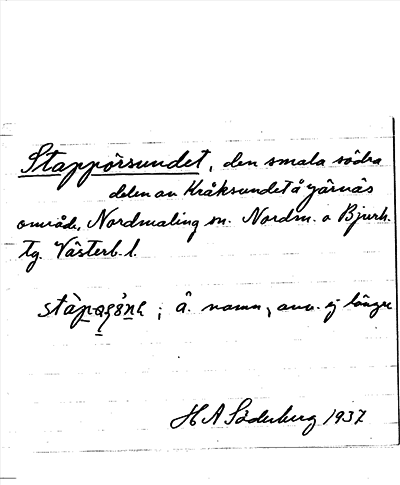 Stappörsundet, den smala södra
delen av Kråksundet å Järnäs
område, Nordmaling sn. Nordm. o Bjurh.
tg. Västerb. l.
; ä. namn, anv. ej längre
H A Söderberg 1937